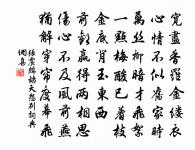 寬盡香羅金縷衣
心情不似舊家時
萬絲柳暗才飛絮
一點梅酸已着枝
金底背玉東西
前歡贏得兩相思
傷心不及風前燕
獨解穿簾度幕飛
張震鷓鴣天怨別詞典